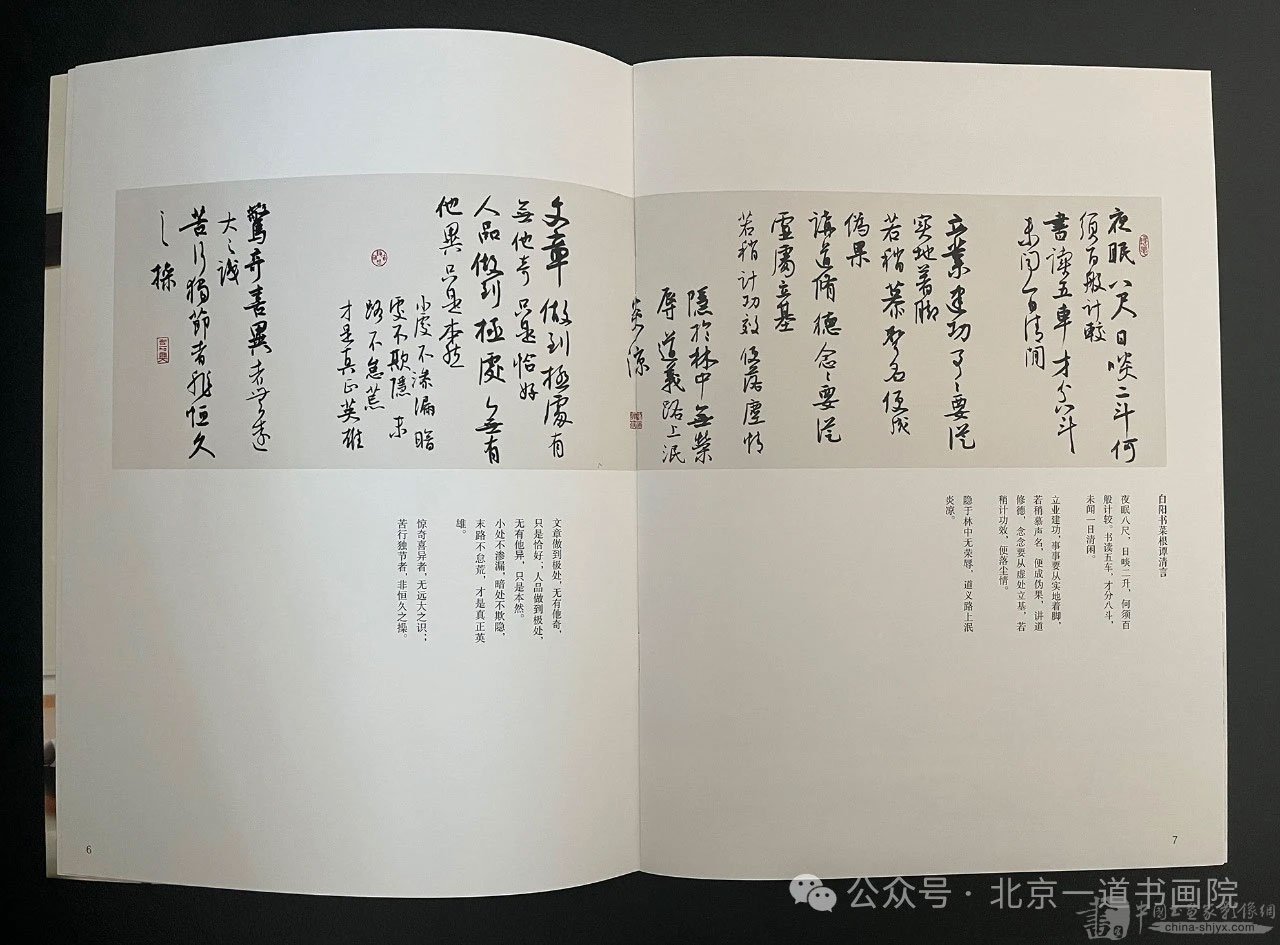 夜眠八尺日啖二斗何
須百般計較
書讀五車才分八斗
未聞一日清閒
立業建功事〻要從
实地着脚
若稍慕声名便成
偽果
講道修德念〻要從
虛處立基
若稍計功效便落塵情
隱於林中無榮
辱道義路上泯
炎涼
文章做到極處有
無他奇只是恰好
人品做到極處無有
他異只是本然
小處不滲漏暗
處不欺隱末
路不怠荒
才是真正英雄
驚奇喜異者無遠
大之識
苦行獨節者非恒久
之操
白阳书菜根谭清言
夜眠八尺，日啖二升，何须百
般计较。书读五车，才分八斗，
未闻一日清闲。
立业建功，事事要从实地着脚，
若稍慕声名，便成伪果，讲道
修德，念念要从虚处立基，若
稍计功效，便落尘情。
隐于林中无荣辱，道义路上泯
炎凉。
文章做到极处，无有他奇，
只是恰好；人品做到极处，
无有他异，只是本然。
小处不渗漏，暗处不欺隐，
末路不怠荒，才是真正英
雄。
惊奇喜异者，无远大之识；
苦行独节者，非恒久之操。
6
7
公众号 · 北京一道书画院
中国书画家影像網
china-shjyx.com